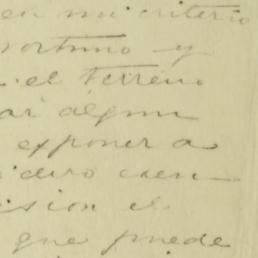 en mi criterio
ortuno y
el terreno
ar algun
exponer a
cision el
que puede